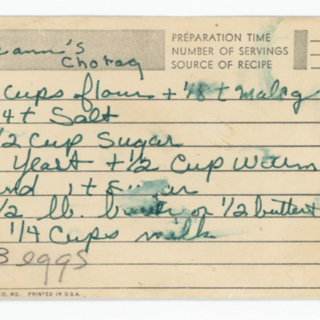 eann's
Choraq
PREPARATION TIME
NUMBER OF SERVINGS
SOURCE OF RECIPE
cups flour + 1/8 t maleg
/4 t Salt
/2 cup Sugar
Yeast + 1/2 Cup warm
and 1 t Sugar
/2 lb. butter or 1/2 butter +
1/4 cups milk
3 eggs
CO, MO. PRINTED IN U.S.A.